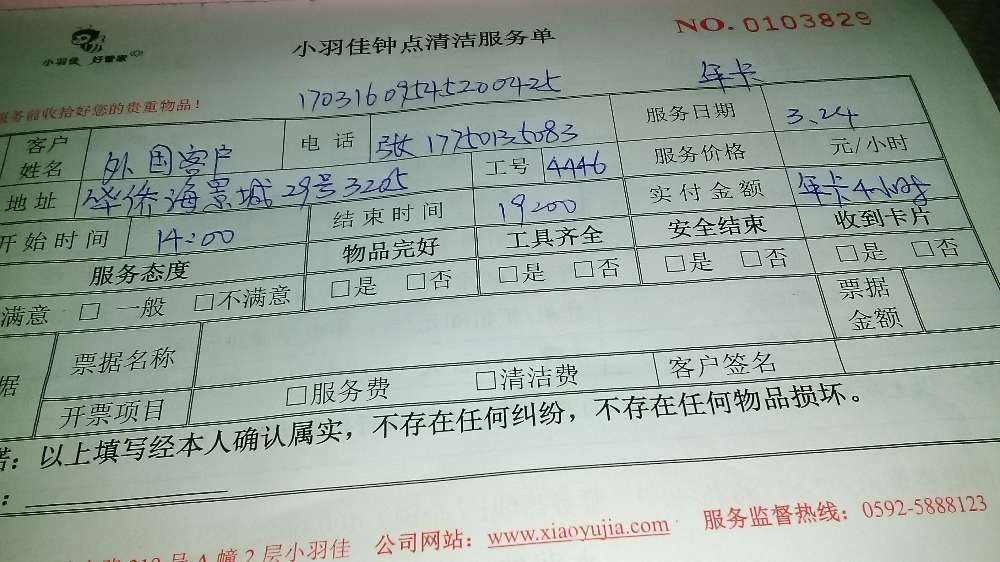 小羽佳 好管家
小羽佳钟点清洁服务单
NO. 0103829
服务前收拾好您的贵重物品！
17031609545200425
年卡
客户姓名 外国客户 电话 张17750135083 服务日期 3.24
地址 华侨海景城29号3205 工号 4446 服务价格 元/小时
开始时间 14:00 结束时间 19:00 实付金额 年卡4小时
服务态度 物品完好 工具齐全 安全结束 收到卡片
满意 □ 一般 □不满意 □是 □否 □是 □否 □是 □否 □是 □否
据 票据名称 票据金额
开票项目 □服务费 □清洁费 客户签名
诺：以上填写经本人确认属实，不存在任何纠纷，不存在任何物品损坏。
：
号A幢2层小羽佳 公司网站：www.xiaoyujia.com 服务监督热线：0592-5888123